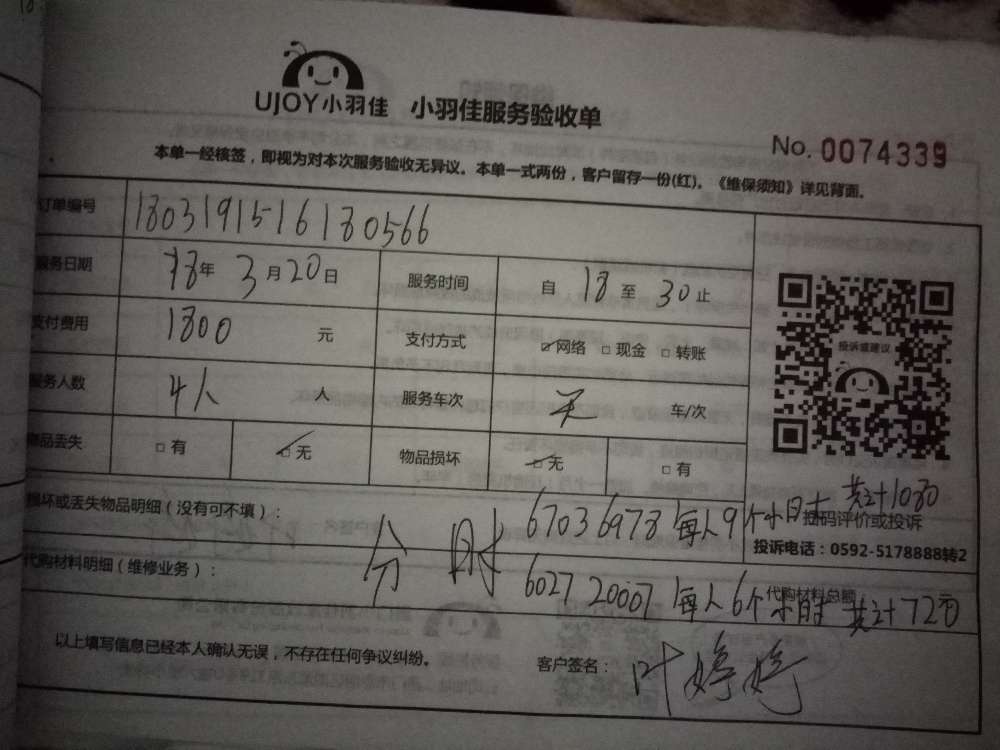 UJOY小羽佳 小羽佳服务验收单
No. 0074339
本单一经核签，即视为对本次服务验收无异议。本单一式两份，客户留存一份(红)。《维保须知》详见背面。
订单编号 1803191516180566
服务日期 18年 3月20日 服务时间 自 18 至 30止
支付费用 1800 元 支付方式 ☑网络 □现金 □转账
投诉或建议
服务人数 4人 人 服务车次 无 车/次
物品丢失 □有 ☑无 物品损坏 ☑无 □有
损坏或丢失物品明细（没有可不填）：
分 时 6703 6978 每人9个小时 共计1080
扫码评价或投诉
投诉电话：0592-5178888转2
代购材料明细（维修业务）：
代购材料总额
6027 20007 每人6个小时 共计720
以上填写信息已经本人确认无误，不存在任何争议纠纷。 客户签名： 叶婷婷